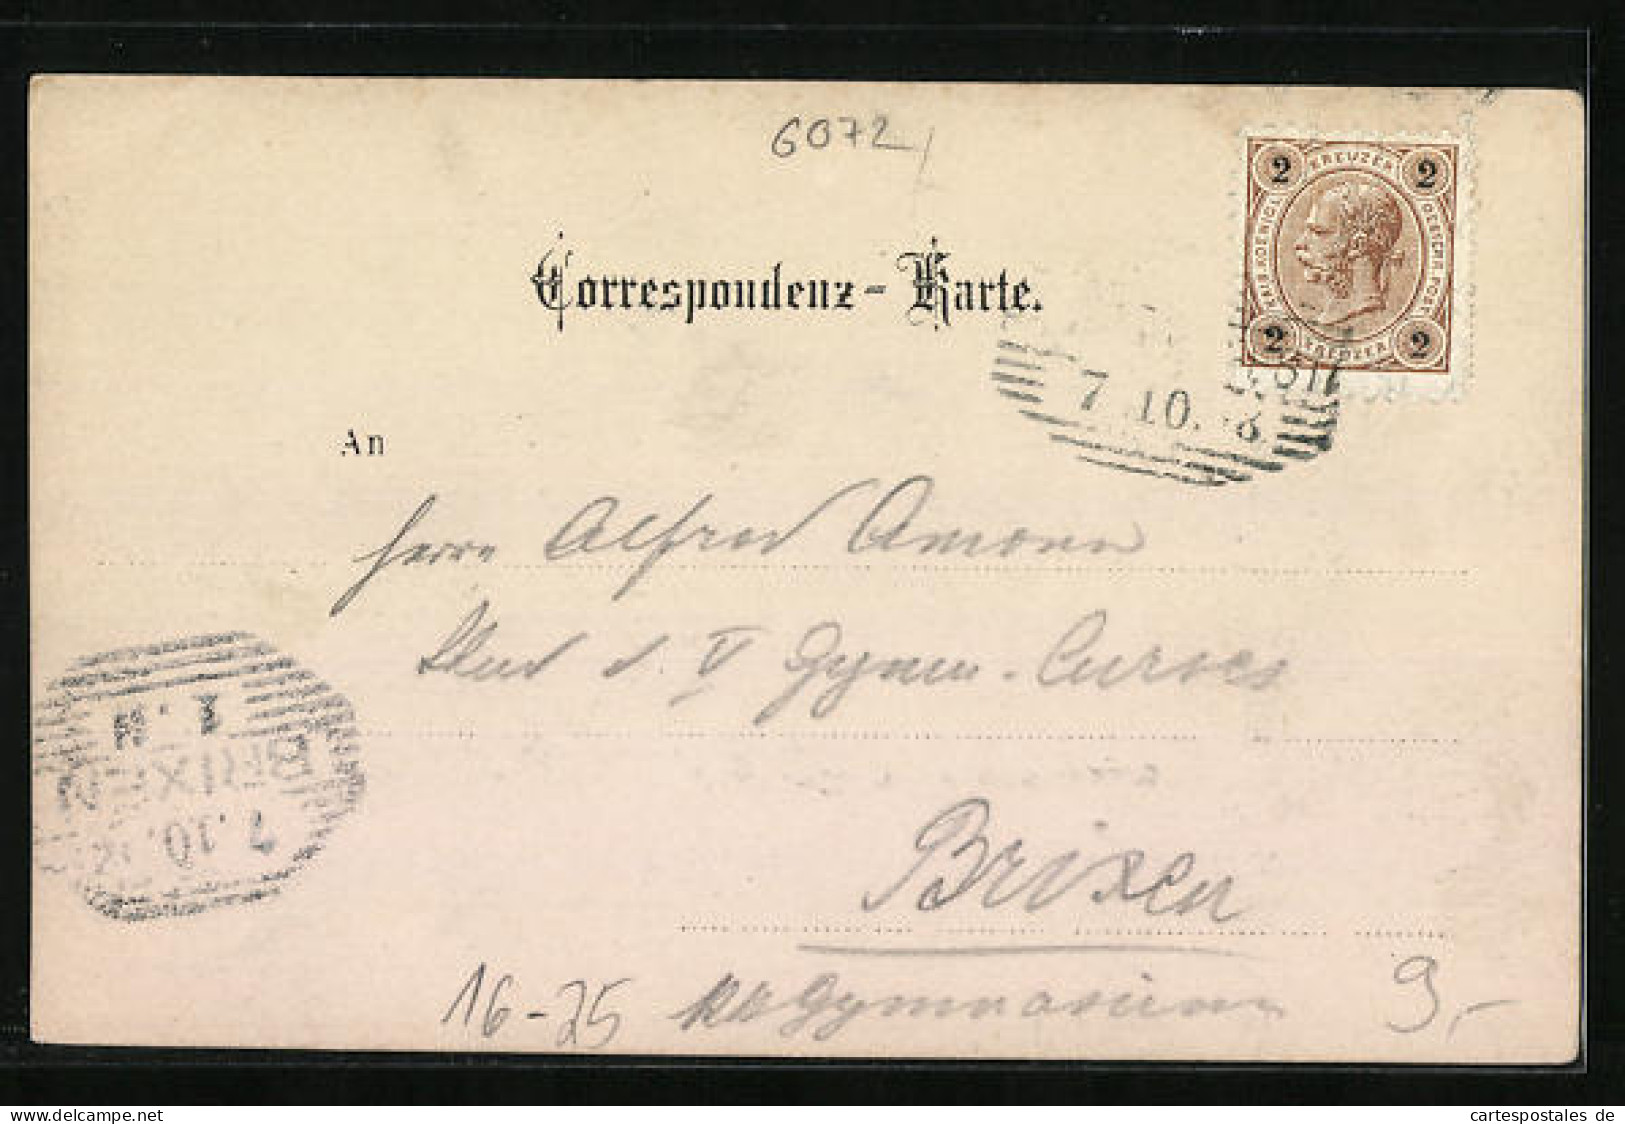 6072
Correspondenz-Karte.
2 KREUZER 2
KAIS. KOENIGL. OESTERR. POST
2 KREUZER 2
7.10.
An
Herrn Alfred Amonn
Stud d. V Gymn. Curses
BRIXEN
7.10.
Brixen
kk Gymnasium
16-25
9,-
cartespostales de